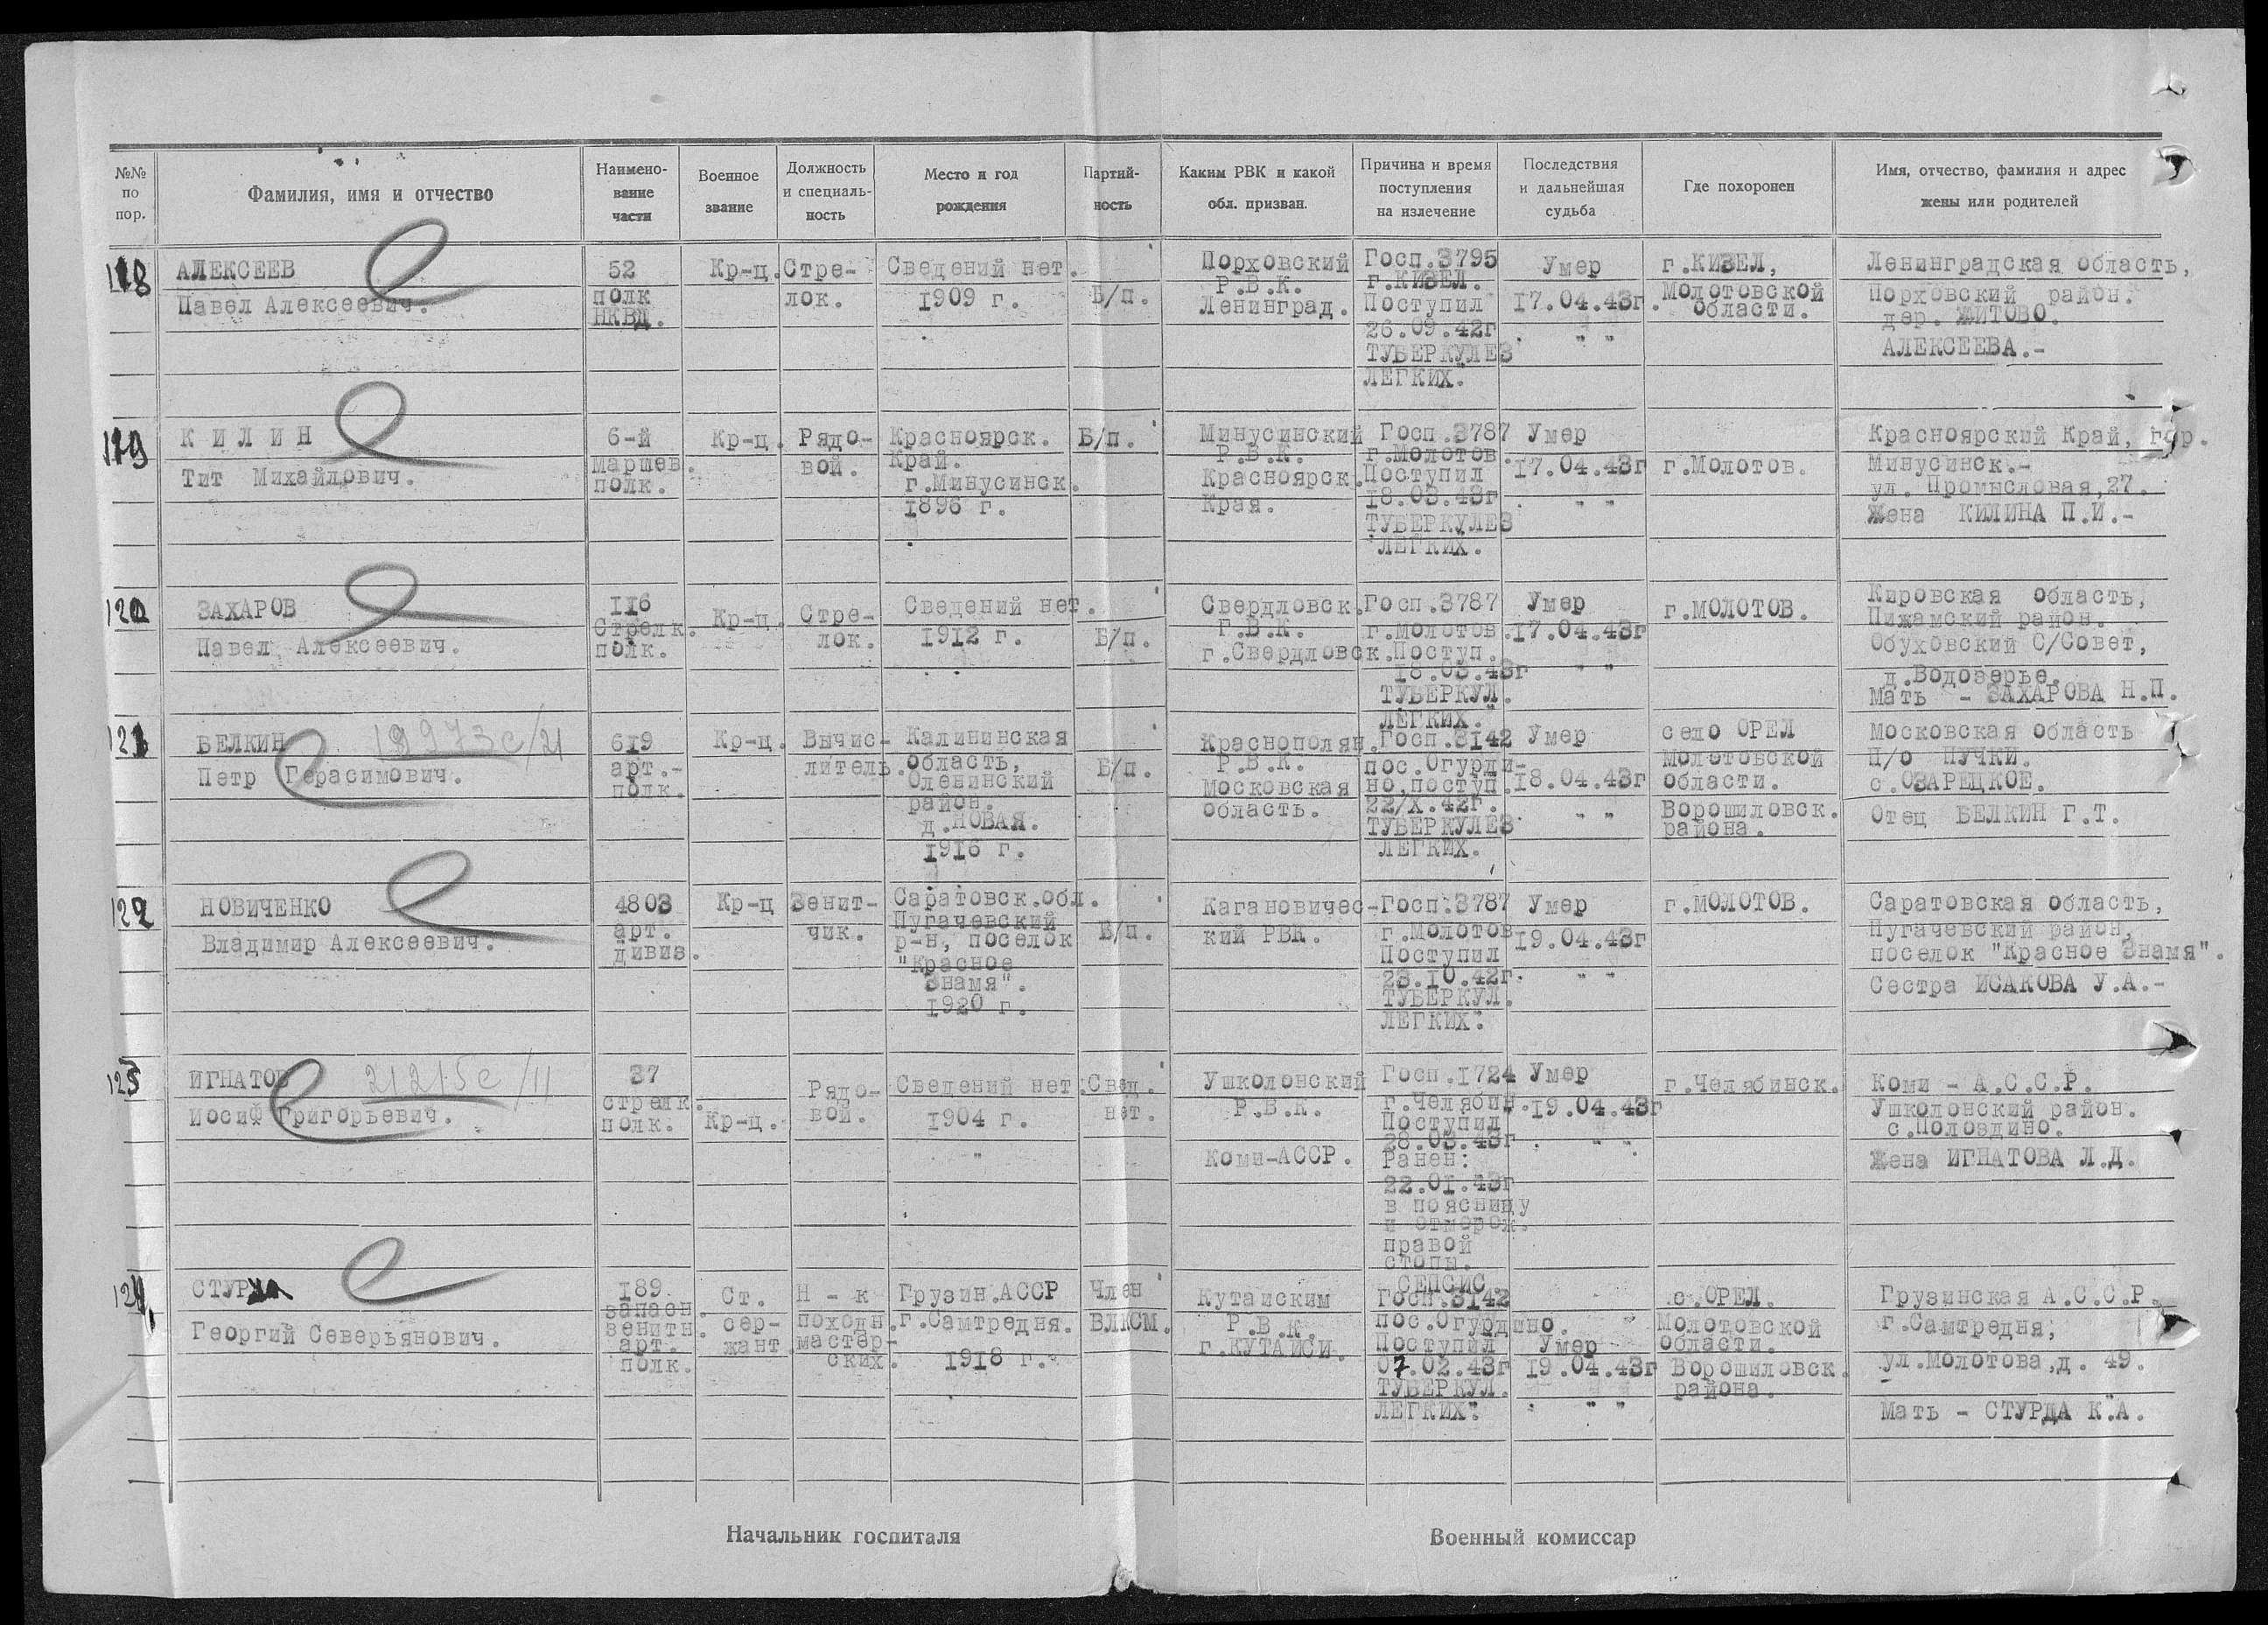 №№ по пор.
Фамилия, имя и отчество
Наимено-
вание
части
Военное
звание
Должность
и специаль-
ность
Место и год
рождения
Партий-
ность
Каким РВК и какой
обл. призван.
Причина и время
поступления
на излечение
Последствия
и дальнейшая
судьба
Где похоронен
Имя, отчество, фамилия и адрес
жены или родителей
118
АЛЕКСЕЕВ
Павел Алексеевич.
52
полк
НКВД.
Кр-ц.
Стре-
лок.
Сведений нет.
1909 г.
Б/п.
Порховский
Р.В.К.
Ленинград.
Госп.3795
г.КИЗЕЛ.
Поступил
26.09.42г
ТУБЕРКУЛЕЗ
ЛЕГКИХ.
Умер
17.04.43г.
" "
г.КИЗЕЛ,
Молотовской
области.
Ленинградская область,
Порховский район.
дер. ЖИТОВО.
АЛЕКСЕЕВА.-
119
К И Л И Н
Тит Михайлович.
6-й
маршев.
полк.
Кр-ц.
Рядо-
вой.
Красноярск.
Край.
г.Минусинск.
1896 г.
Б/п.
Минусинский
Р.В.К.
Красноярск.
Края.
Госп.3787
г.Молотов.
Поступил
18.03.43г
ТУБЕРКУЛЕЗ
ЛЕГКИХ.
Умер
17.04.43г
" "
г.Молотов.
Красноярский Край, гор.
Минусинск.-
ул. Промысловая,27.
Жена КИЛИНА П.И.-
120
ЗАХАРОВ
Павел Алексеевич.
116
Стрелк.
полк.
Кр-ц.
Стре-
лок.
Сведений нет.
1912 г.
Б/п.
Свердловск.
Г.В.К.
г.Свердловск.
Госп.3787
г.Молотов.
Поступ.
18.03.43г
ТУБЕРКУЛ.
ЛЕГКИХ.
Умер
17.04.43г
" "
г.МОЛОТОВ.
Кировская область,
Пижамский район.
Обуховский С/Совет,
д.Водозерье.
Мать - ЗАХАРОВА Н.П.
121
БЕЛКИН
19973с/21
Петр Герасимович.
619
арт.-
полк.
Кр-ц.
Вычис-
литель.
Калининская
область,
Оленинский
район.
д.НОВАЯ.
1916 г.
Б/п.
Краснополян.
Р.В.К.
Московская
область.
Госп.3142
пос.Огурди-
но,поступ.
22/X.42г.
ТУБЕРКУЛЕЗ
ЛЕГКИХ.
Умер
18.04.43г
" "
село ОРЕЛ
Молотовской
области.
Ворошиловск.
района.
Московская область
П/о ПУЧКИ.
с.ОЗАРЕЦКОЕ.
Отец БЕЛКИН Г.Т.
122
НОВИЧЕНКО
Владимир Алексеевич.
4803
арт.
дивиз.
Кр-ц
Зенит-
чик.
Саратовск.обл.
Пугачевский
р-н, поселок
"Красное
Знамя".
1920 г.
Б/п.
Кагановичес-
кий РВК.
Госп.3787
г.Молотов
Поступил
23.10.42г.
ТУБЕРКУЛ.
ЛЕГКИХ.
Умер
19.04.43г
" "
г.МОЛОТОВ.
Саратовская область,
Пугачевский район,
поселок "Красное Знамя".
Сестра ИСАКОВА У.А.-
123
ИГНАТОВ
21215с/11
Иосиф Григорьевич.
37
стрелк.
полк.
Кр-ц.
Рядо-
вой.
Сведений нет.
1904 г.
Свед.
нет.
Ушколонский
Р.В.К.
Коми-АССР.
Госп.1724
г.Челябин.
Поступил
28.03.43г
Ранен:
22.01.43г
в поясницу
и отморож.
правой
стопы.
СЕПСИС.
Умер
19.04.43г
" "
г.Челябинск.
Коми - А.С.С.Р.
Ушколонский район.
с.Пологдино.
Жена ИГНАТОВА Л.Д.
124
СТУРУА
Георгий Северьянович.
189
запасн.
зенитн.
арт.
полк.
Ст.
сер-
жант.
Н - к
походн.
мастер-
ских.
Грузин.АССР
г.Самтредня.
1918 г.
Член
ВЛКСМ.
Кутаиским
Р.В.К.
г.КУТАИСИ.
Госп.3142
пос.Огурдино.
Поступил
07.02.43г
ТУБЕРКУЛ.
ЛЕГКИХ.
Умер
19.04.43г
" "
с.ОРЕЛ.
Молотовской
области.
Ворошиловск.
района.
Грузинская А.С.С.Р.
г.Самтредня,
ул.Молотова,д. 49.
Мать - СТУРДА К.А.
Начальник госпиталя
Военный комиссар